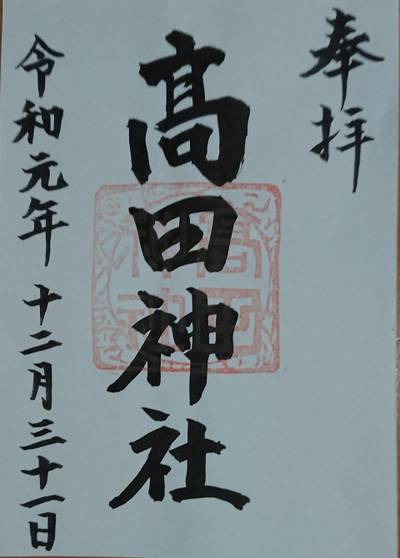 奉拝
髙田神社
令和元年十二月三十一日